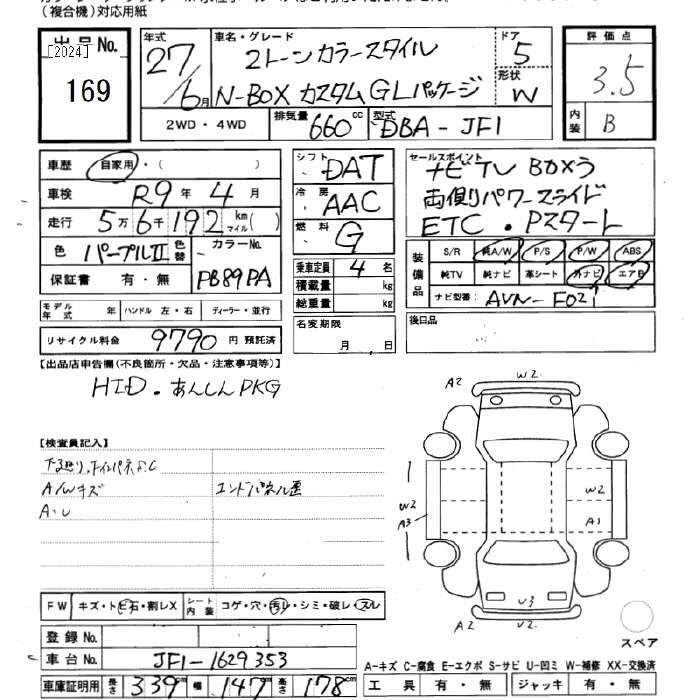 (複合機)対応用紙
出品No.
[2024]
169
年式 27/6月
車名・グレード 2トーンカラースタイル
N-BOX カスタム GLパッケージ
ドア 5
形状 W
評価点 3.5
内装 B
2WD・4WD
排気量 660cc
型式 DBA-JF1
車歴 自家用・( )
車検 R9年 4月
走行 5万6千192 km マイル( )
色 パープルII
色替
カラーNo. PB89PA
保証書 有・無
シフト DAT
冷房 AAC
燃料 G
乗車定員 4名
積載量 kg
総重量 kg
セールスポイント
ナビ TV Bカメラ
両側パワースライド
ETC・Pスタート
装備品
S/R 純A/W P/S P/W ABS
純TV 純ナビ 革シート 外ナビ エアB
ナビ型番: AVN-F02i
モデル年式 年 ハンドル 左・右 ディーラー・並行
リサイクル料金 9790円 預託済
名変期限 月 日
後日品
【出品店申告欄(不良箇所・欠品・注意事項等)】
HID・あんしんPKG
【検査員記入】
A/Wキズ
A・U
エンドパネル歪
A2 W2
W2 A3 W2
A1
W3
A2 U2
スペア
FW キズ・トビ石・割レX
シート内装 コゲ・穴・汚レ・シミ・破レ・スレ
登録No.
車台No. JF1-1629353
車庫証明用 長さ 339cm 幅 147cm 高さ 178cm
A-キズ C-腐食 E-エクボ S-サビ U-凹ミ W-補修 XX-交換済
工具 有・無 ジャッキ 有・無